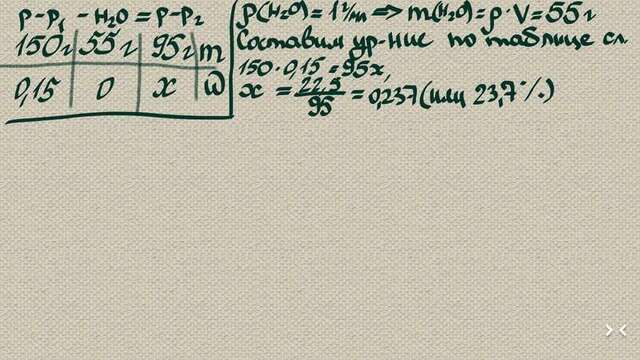 р-р₁ - H₂O = р-р₂
150г 55г 95г m
0,15 0 x ω
ρ(H₂O) = 1 г/мл => m(H₂O) = ρ · V = 55г
Составим ур-ние по таблице сл.
150 · 0,15 = 95x,
x = 22,5/95 = 0,237 (или 23,7 %)